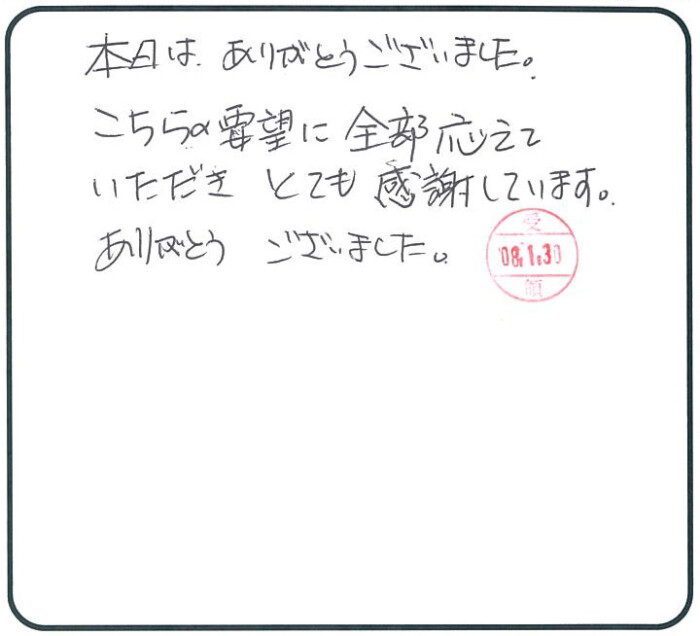 本日は、ありがとうございました。
こちらの要望に全部応えて
いただき とても感謝しています。
ありがとう ございました。
受
'08.1.30
領